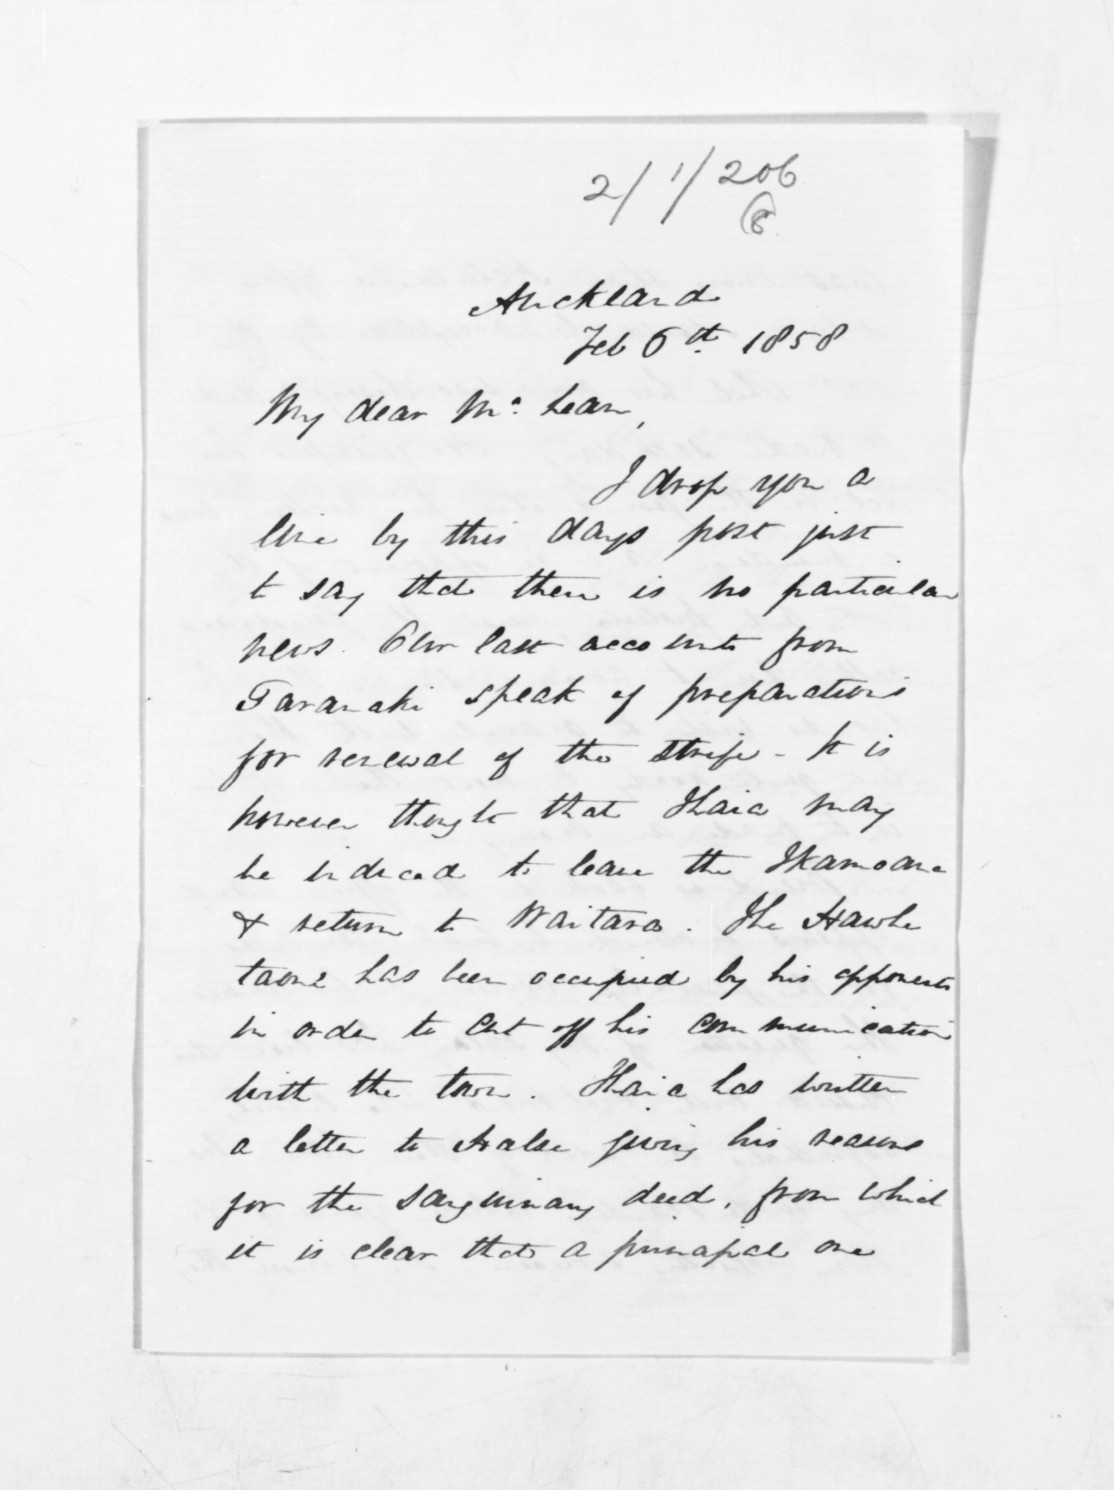 2/1/206
(8
Auckland
Feb 6th. 1858
My dear McLean,
I drop you a
line by this days post just
to say that there is no particular
news. Our last accounts from
Taranaki speak of preparations
for renewal of the strife - It is
however thought that Ihaia may
be induced to leave the Ikamoana
& return to Waitara. The Hawhe
taone has been occupied by his opponents
in order to cut off his communication
with the town. Ihaia has written
a letter to Halse giving his reasons
for the sanguinary deed, from which
it is clear that a principal one